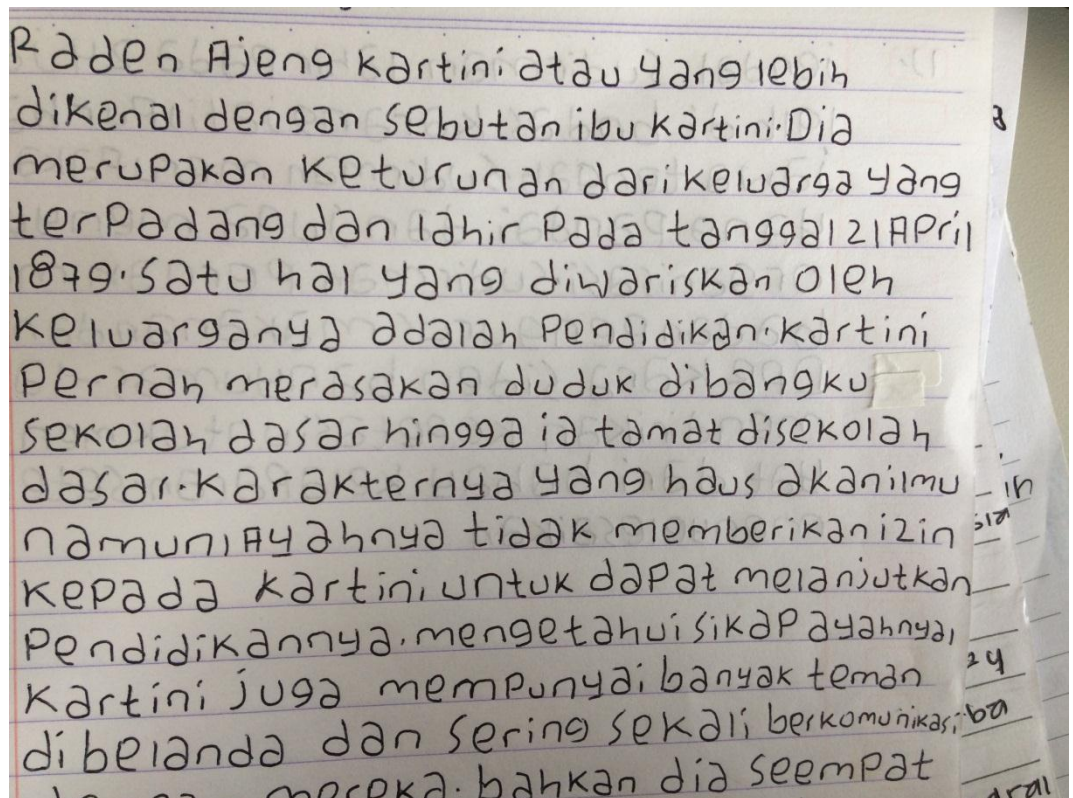 Raden Ajeng kartini atau yang lebih
dikenal dengan sebutan ibu kartini. Dia
merupakan keturunan dari keluarga yang
terpadang dan lahir pada tanggal 21 April
1879. Satu hal yang diwariskan oleh
keluarganya adalah pendidikan. kartini
pernah merasakan duduk dibangku
sekolah dasar hingga ia tamat disekolah
dasar. Karakternya yang haus akan ilmu
namun, Ayahnya tidak memberikan izin
kepada kartini untuk dapat melanjutkan
pendidikannya. mengetahui sikap ayahnya,
kartini juga mempunyai banyak teman
di belanda dan sering sekali berkomunikasi
mereka. bahkan dia seempat